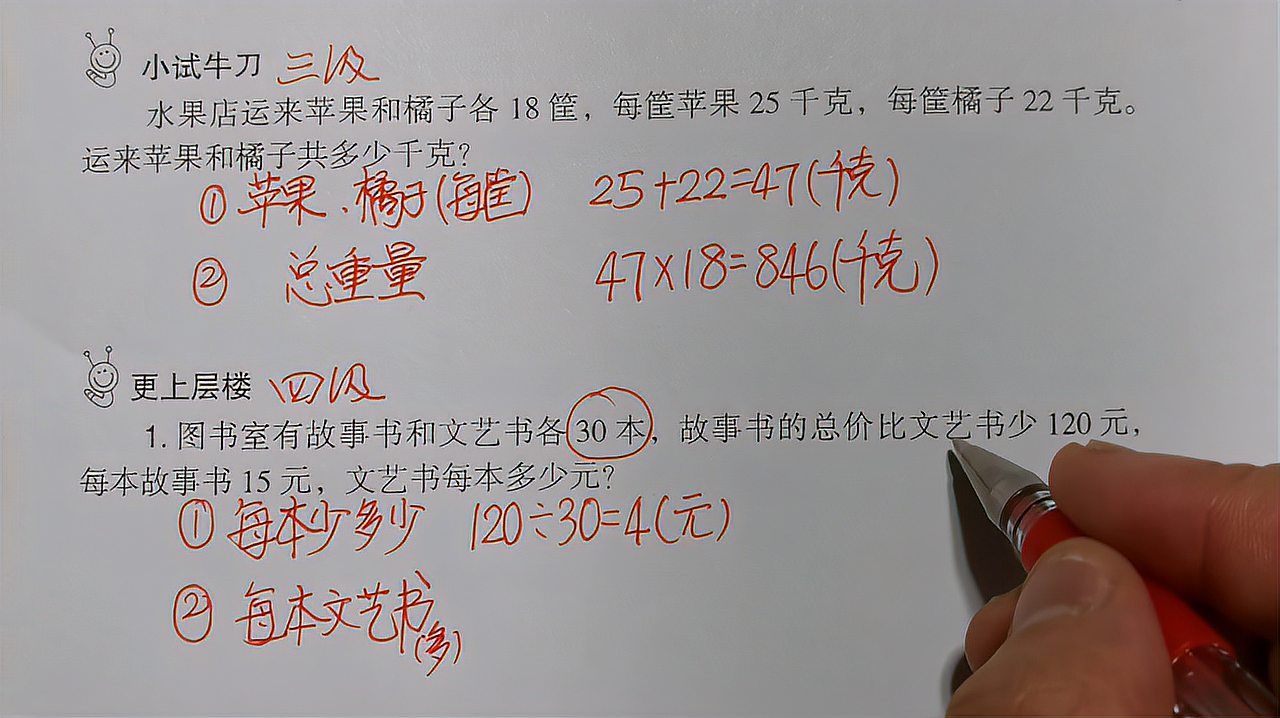 小试牛刀 三级
水果店运来苹果和橘子各 18 筐，每筐苹果 25 千克，每筐橘子 22 千克。
运来苹果和橘子共多少千克？
① 苹果、橘子(每筐) 25+22=47(千克)
② 总重量 47×18=846(千克)
更上层楼 四级
1. 图书室有故事书和文艺书各 30 本，故事书的总价比文艺书少 120 元，
每本故事书 15 元，文艺书每本多少元？
① 每本少多少 120÷30=4(元)
② 每本文艺书
(多)